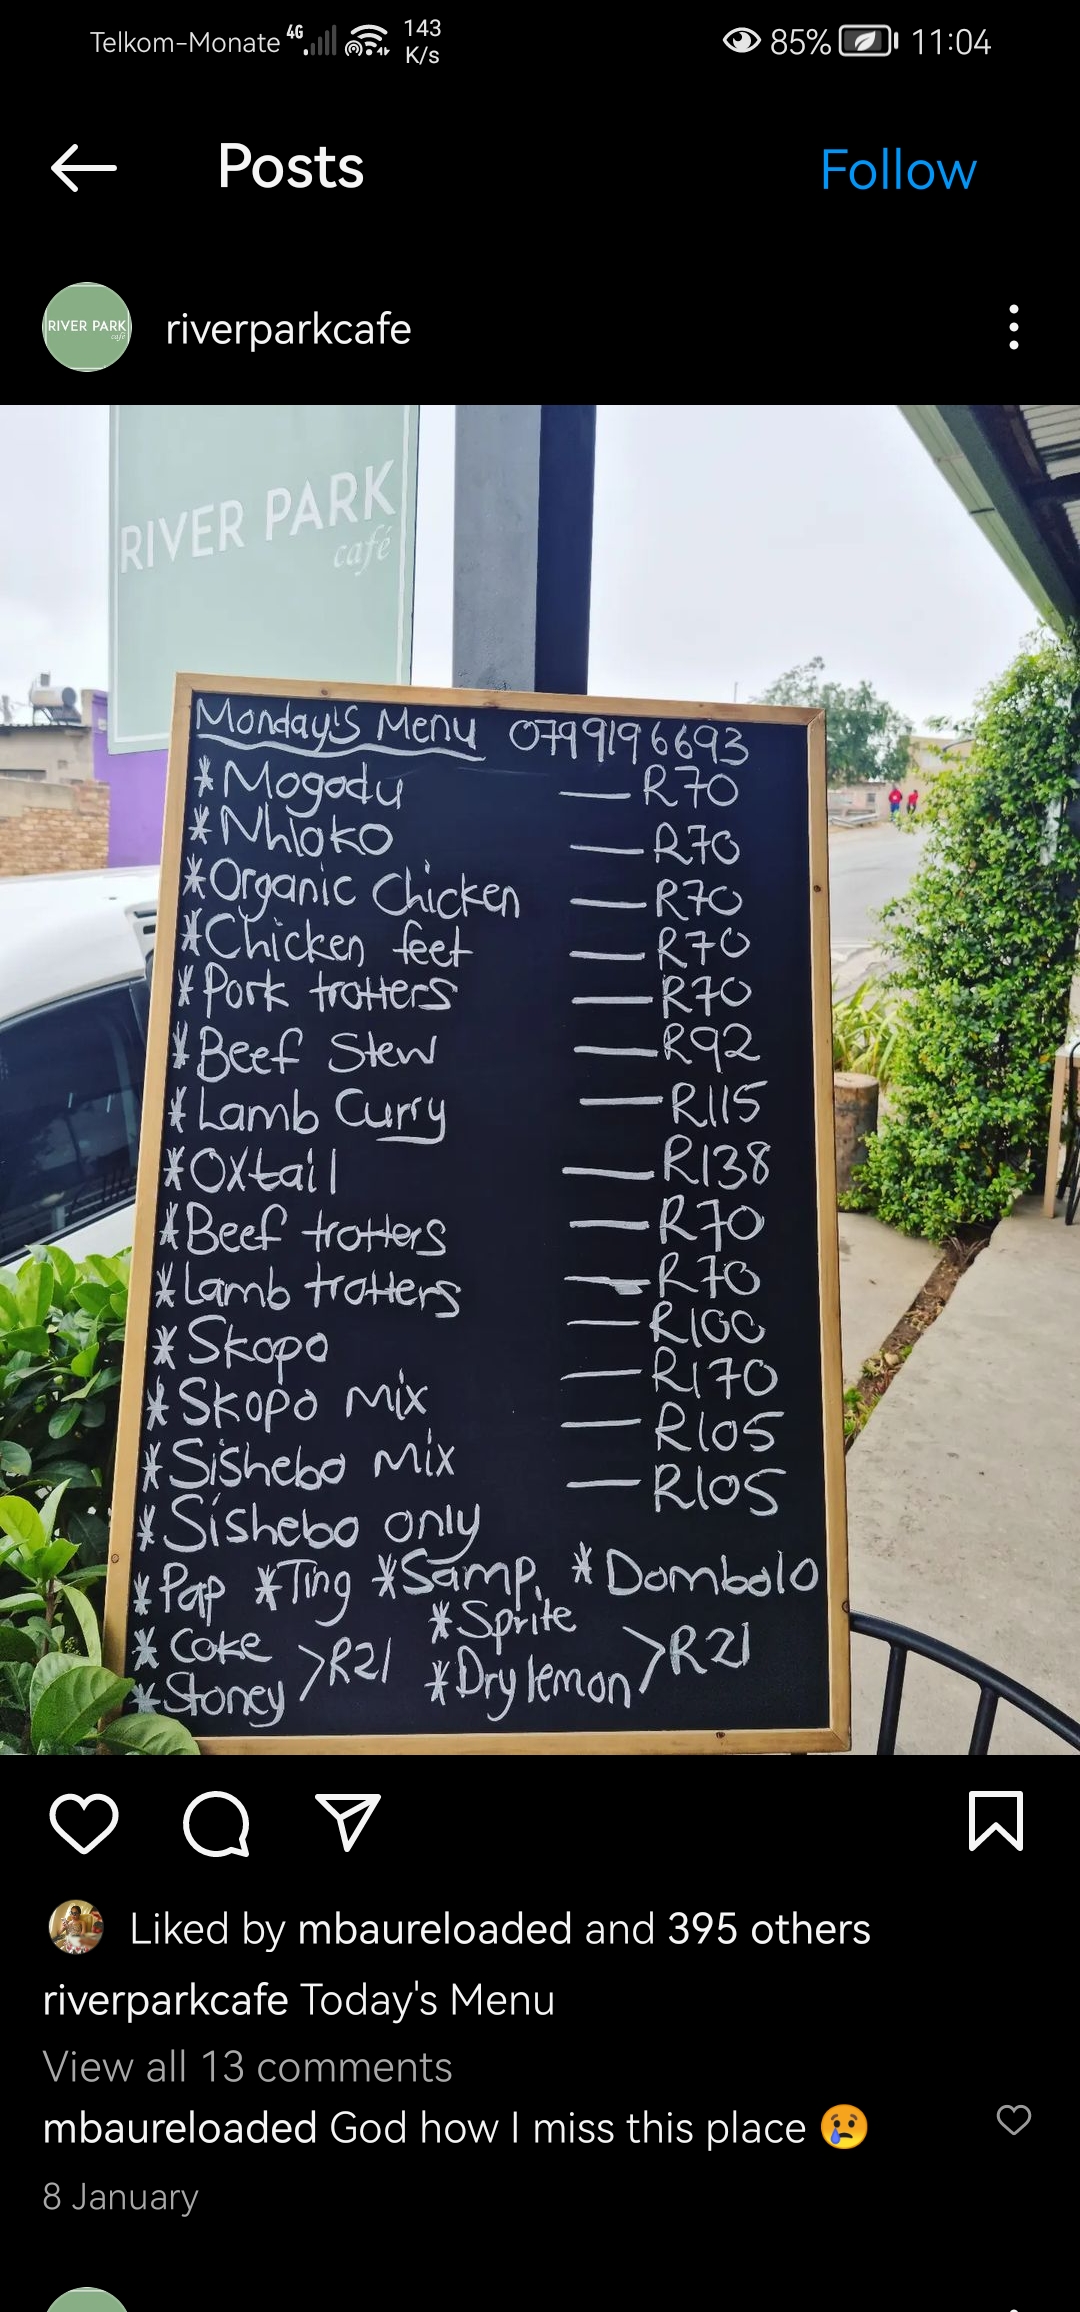 Telkom-Monate 4G 143 K/s 85% 11:04
Posts Follow
RIVER PARK café riverparkcafe
RIVER PARK
café
Monday's Menu 0799196693
*Mogodu — R70
*Nhloko — R70
*Organic Chicken — R70
*Chicken feet — R70
*Pork trotters — R70
*Beef Stew — R92
*Lamb Curry — R115
*Oxtail — R138
*Beef trotters — R70
*Lamb trotters — R70
*Skopo — R100
*Skopo Mix — R170
*Sishebo Mix — R105
*Sishebo only — R105
*Pap *Ting *Samp, *Dombolo
*Coke *Sprite
>R21 >R21
*Stoney *Dry lemon
Liked by mbaureloaded and 395 others
riverparkcafe Today's Menu
View all 13 comments
mbaureloaded God how I miss this place 😢
8 January